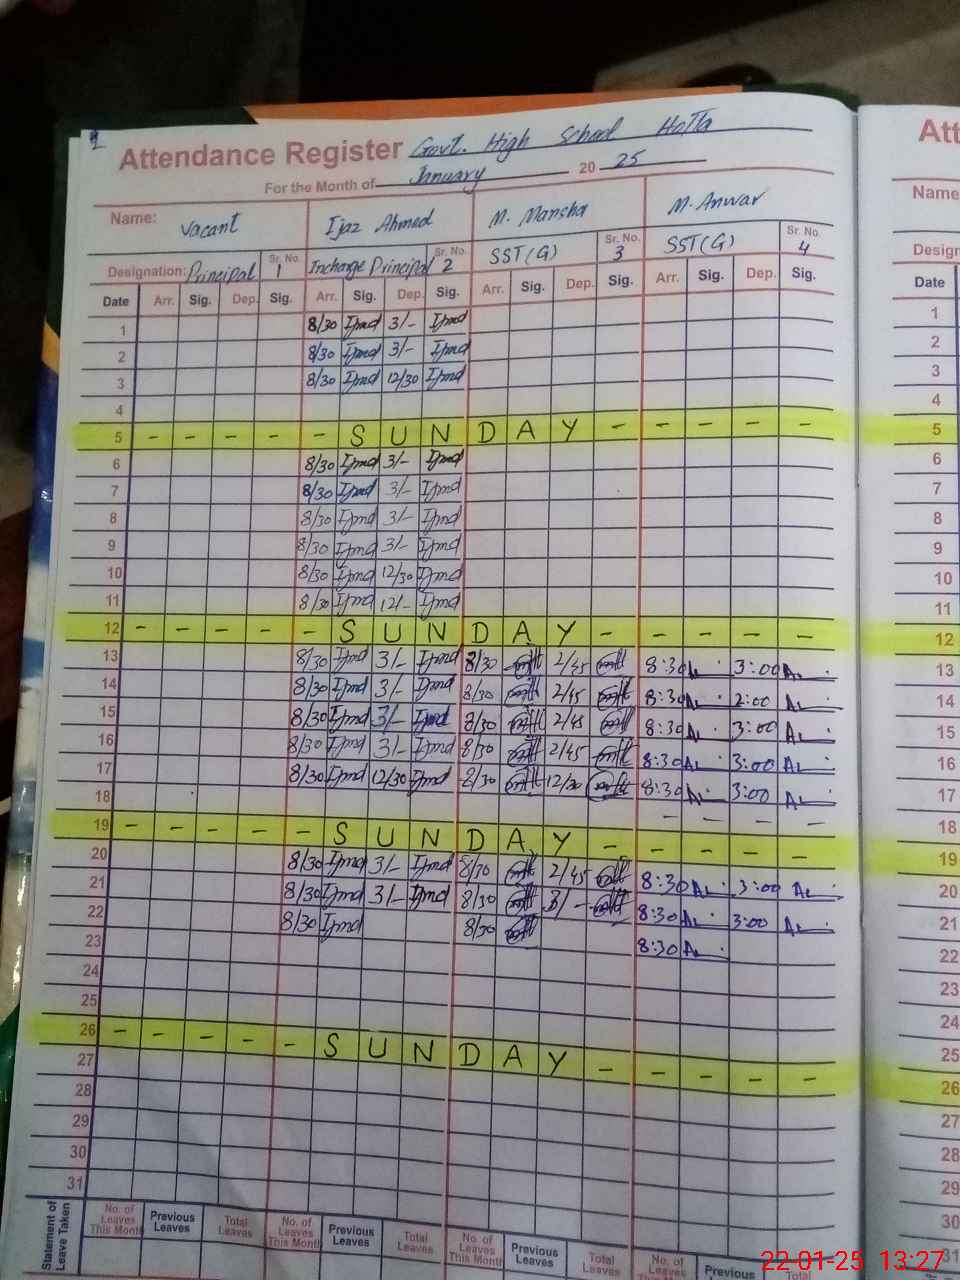 1
Attendance Register Govt. High School Hotla
For the Month of January 20 25
Name: Vacant Ijaz Ahmed M. Mansha M. Anwar
Designation: Principal Sr. No. 1 Incharge Principal Sr. No. 2 SST(G) Sr. No. 3 SST(G) Sr. No. 4
Date Arr. Sig. Dep. Sig. Arr. Sig. Dep. Sig. Arr. Sig. Dep. Sig. Arr. Sig. Dep. Sig.
1 8/30 3/-
2 8/30 3/-
3 8/30 12/30
4
5 - - - - - S U N D A Y - - - - - -
6 8/30 3/-
7 8/30 3/-
8 8/30 3/-
9 8/30 3/-
10 8/30 12/30
11 8/30 12/-
12 - - - - - S U N D A Y - - - - -
13 8/30 3/- 8/30 2/45 8:30 3:00
14 8/30 3/- 8/30 2/45 8:30 2:00
15 8/30 3/- 8/30 2/45 8:30 3:00
16 8/30 3/- 8/30 2/45 8:30 3:00
17 8/30 12/30 8/30 12/30 8:30 3:00
18 - - - -
19 - - - - - S U N D A Y - - - - -
20 8/30 3/- 8/30 2/45 8:30 3:00
21 8/30 3/- 8/30 3/- 8:30 3:00
22 8/30 8/30 8:30
23
24
25
26 - - - - - S U N D A Y - - - - - -
27
28
29
30
31
Statement of Leave Taken
No. of Leaves This Month Previous Leaves Total Leaves No. of Leaves This Month Previous Leaves Total Leaves No. of Leaves This Month Previous Leaves Total Leaves No. of Leaves This Month Previous Total
Att
Name
Design
Date
1
2
3
4
5
6
7
8
9
10
11
12
13
14
15
16
17
18
19
20
21
22
23
24
25
26
27
28
29
30
31
22-01-25 13:27